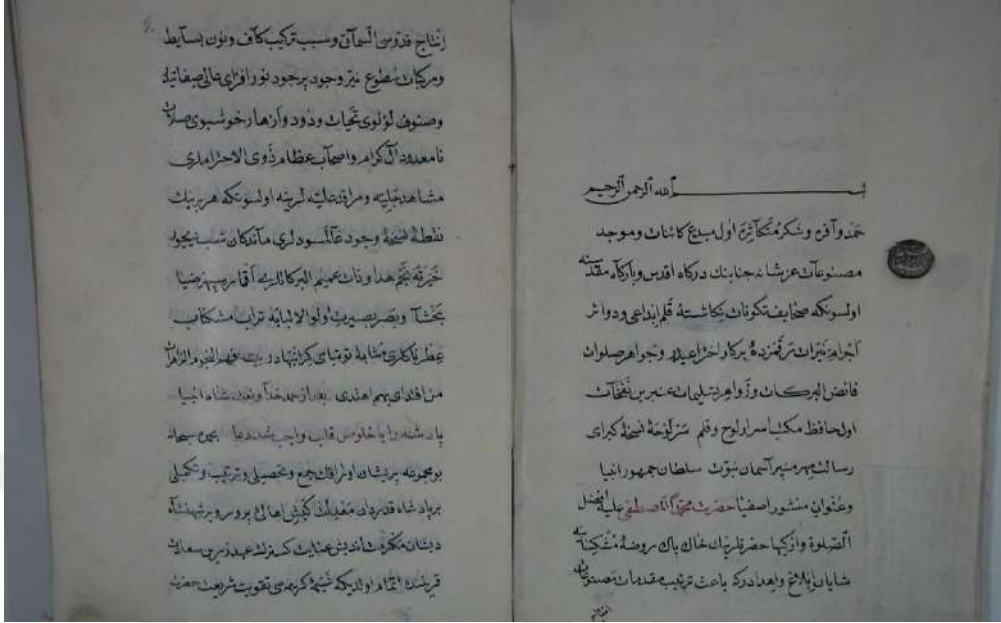 بسم الله الرحمن الرحيم
حمد وآفره وشكر متكاثره اول مبدع كائنات وموجد
مصنوعات عز شانه جنابنك دركاه اقدس وبارگاه مقدسنه
اولسونكه صحايف تكونات نكاشتهٔ قلم ابداعى ودوائر
اجرام نيرات رقمزدهٔ پركار اختراعيدر وجواهر صلوات
فائض البركات وزواهر تسليمات عنبرين نفحات
اول حافظ مكتب اسرار لوح وقلم سرلوحهٔ نسخهٔ كبراى
رسالت مهر منير آسمان نبوت سلطان جمهور انبيا
وعنوان منشور اصفيا حضرت محمد المصطفى عليه افضل
الصلوة وازكيها حضرتلرينك خاك پاك روضهٔ مشكينه
شايان ابلاغ واهدادركه باعث ترتيب مقدمات مصنوعات
انتاج قدوسى السماتى وسبب تركيب كاف ونون بسايط
ومركبات سطوع نير وجود پرجود نور افزاى عالى صفاتيله
وصنوف لؤلؤى تحيات ودود وازهار خوشبوى صلات
نامعدود آل كرام واصحاب عظام ذوى الاحترام لرى
مشاهد جليه ومراقد عليه لرينه اولسونكه هر برينك
نقطهٔ نسخهٔ وجود عالمسودلرى ماندكان شب يجور
خيرته نجم هدا وذات عميم البركاتلرى آفاق سپهر ضيا
بخشا وبصر بصيرت اولو الالبابه تراب مشكناب
عطرناكلرى مشابهٔ توتياى كرانبهادر بيت فهم النجوم الزاهرات
من اقتداى بهم اهتدى بعد از حمد خدا ونعت شاه انبيا
پادشهه را با خلوص قلب واجب شد دعا بحمده سبحانه
بو مجموعه پريشان اوراقك جمع وتحصيلى وترتيب وتكميلى
بر پادشاه قدردان معدلت كيش اهالئ پرور وبر شهنشاه
ديشان مكرمت انديش عنايت كستر نك عهد زرين سعادت
قريننده اتمام اولديكه شيمهٔ كريمه سى تقويت شريعت حضرت